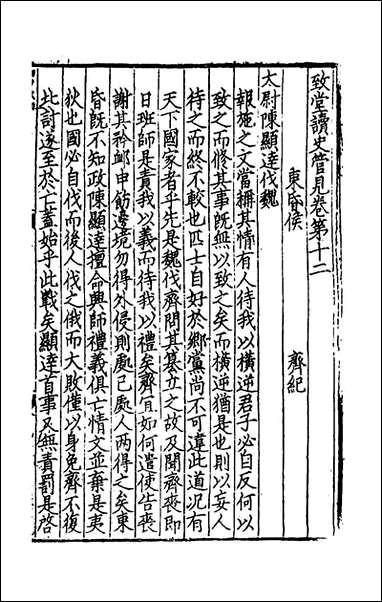 致堂讀史管見卷第十二
東昏侯　齊紀
太尉陳顯達伐魏
報施之文當稱其情有人待我以橫逆君子必自反何以
致之而修其事既無以致之矣而橫逆猶是也則以妄人
待之而終不較也匹士自好於鄉黨尚不可違此道况有
天下國家者乎先是魏伐齊問其簒立之故及聞齊喪即
日班師是責我以義而待我以禮矣齊冝如何遣使告喪
謝其矜卹申飭邊境勿得外侵則處己處人两得之矣東
昏既不知政陳顯達擅命興師禮義俱亡情文並棄是夷
狄也國必自伐而後人伐之俄而大敗僅以身免齊不復
此討遂至於亡蓋始乎此戰矣顯達首事又無責罰是啓